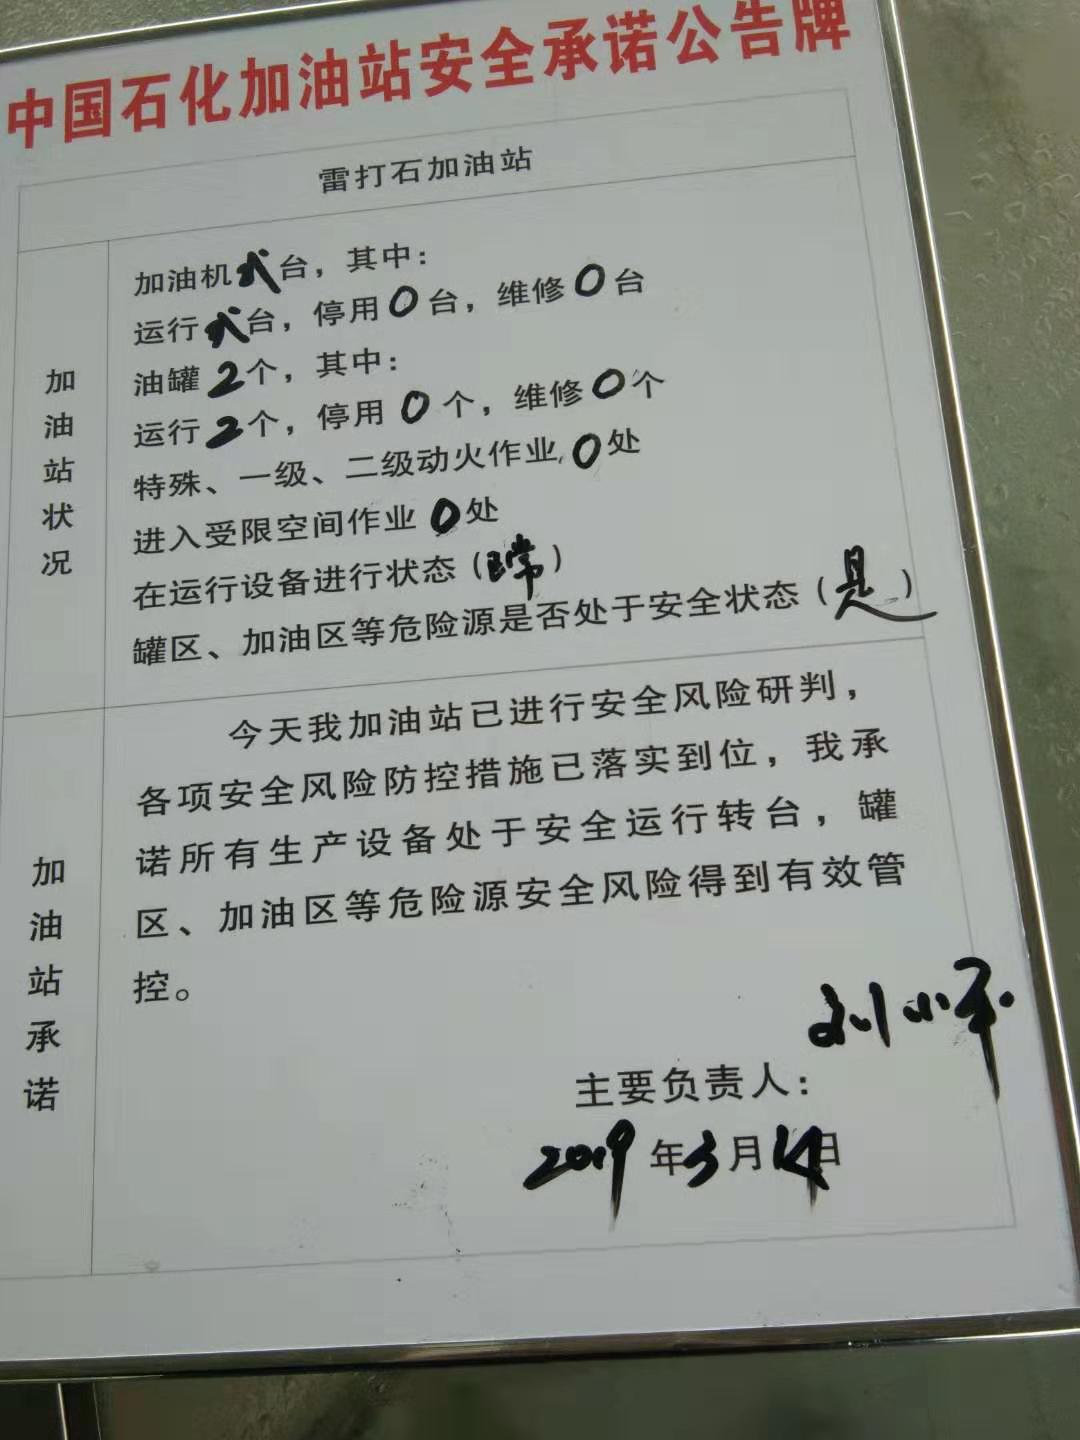 中国石化加油站安全承诺公告牌
雷打石加油站
加油站状况
加油机台，其中：
运行台，停用0台，维修0台
油罐2个，其中：
运行2个，停用0个，维修0个
特殊、一级、二级动火作业0处
进入受限空间作业0处
在运行设备进行状态（正常）
罐区、加油区等危险源是否处于安全状态（是）
加油站承诺
今天我加油站已进行安全风险研判，
各项安全风险防控措施已落实到位，我承
诺所有生产设备处于安全运行转台，罐
区、加油区等危险源安全风险得到有效管
控。
主要负责人：刘小平
2019年3月14日